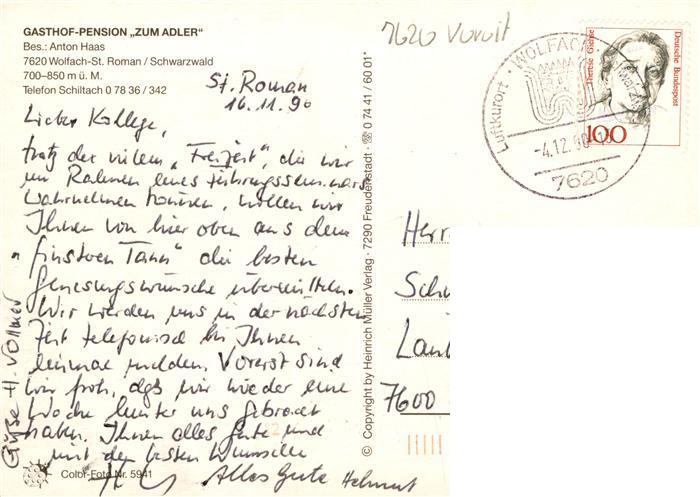 GASTHOF-PENSION „ZUM ADLER"
Bes.: Anton Haas
7620 Wolfach-St. Roman / Schwarzwald
700–850 m ü. M.
Telefon Schiltach 0 78 36 / 342
St. Roman
16.11.90
Lieber Kollege,
trotz der vielen „Freizeit", die wir
im Rahmen eines Führungsseminars
wahrnehmen können, wollen wir
Ihnen von hier oben aus dem
„finsteren Tann" die besten
Genesungswünsche übermitteln.
Wir werden uns in der nächsten
Zeit telefonisch bei Ihnen
einmal melden. Vorerst sind
wir froh, daß wir wieder eine
Woche hinter uns gebracht
haben. Ihnen alles Gute und
mit den besten Wünschen
Alles Gute Helmut
Grüße H. Vollmer
Color-Foto Nr. 5941
© Copyright by Heinrich Müller Verlag · 7290 Freudenstadt · ☎ 0 74 41 / 60 01*
7620 Vorort
Luftkurort · WOLFACH
-4.12.90
7620
Therese Giehse
Deutsche Bundespost
100
Herr
Sch
7600